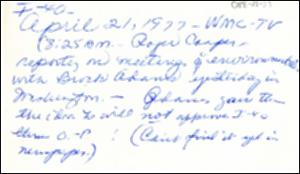 I-40-
April 21, 1977 - WMC-TV
(8:25 am - Rope Cooper
reporter on meeting of environmentalists
with Brock Adams yesterday in
Washington. - Adams gave them
the idea he will not approve I-40
thru O-P! (Can't find it yet in
newspaper.)